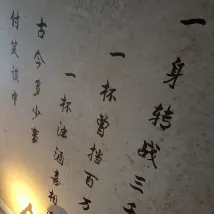 一身转战三
一杯曾挡百万
一杯浊酒喜相
古今多少事
付笑谈中